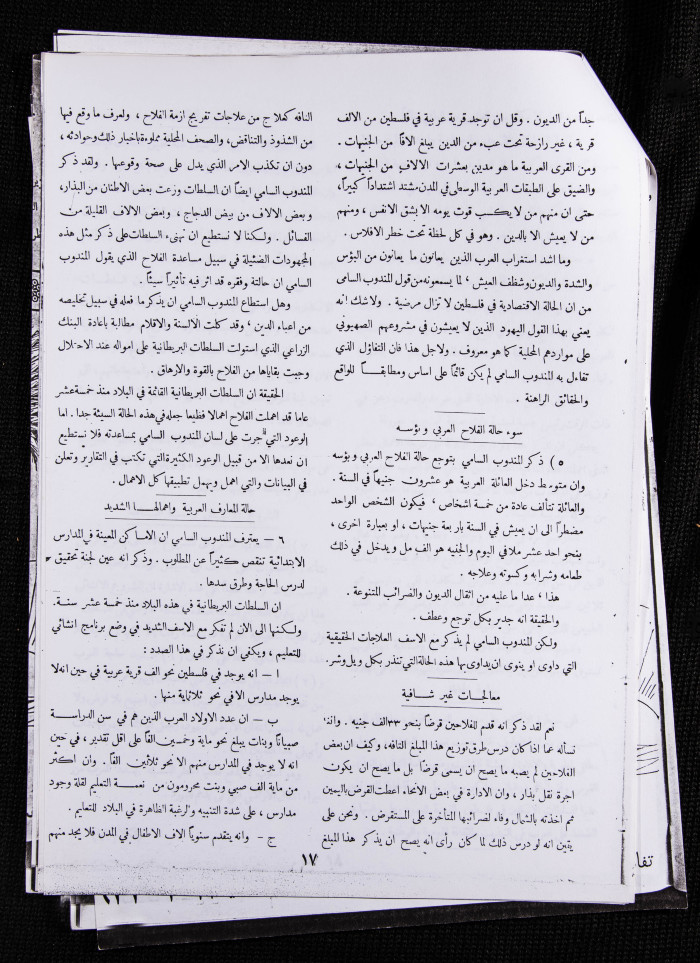 جداً من الديون . وقل ان توجد قرية عربية في فلسطين من الالف
قرية ، غير رازحة تحت عبء من الدين يبلغ الافاً من الجنيهات .
ومن القرى العربية ما هو مدين بعشرات الالاف من الجنيهات ،
والضيق على الطبقات العربية الوسطى في المدن مشتد اشتداداً كبيراً،
حتى ان منهم من لا يكسب قوت يومه الا بشق الانفس ، ومنهم
من لا يعيش الا بالدين . وهو في كل لحظة تحت خطر الافلاس .
وما اشد استغراب العرب الذين يعانون ما يعانون من البؤس
والشدة والديون وشظف العيش ، لما يسمعونه من قول المندوب السامى
من ان الحالة الاقتصادية في فلسطين لا تزال مرضية . ولاشك انه
يعني بهذا القول اليهود الذين لا يعيشون في مشروعهم الصهيوني
على مواردهم المحلية كما هو معروف . ولاجل هذا فان التفاؤل الذي
تفاءل به المندوب السامي لم يكن قائماً على اساس ومطابقاً للواقع
والحقائق الراهنة .
سوء حالة الفلاح العربي وبؤسه
٥ ) ذكر المندوب السامي بتوجع حالة الفلاح العربي وبؤسه
وان متوسط دخل العائلة العربية هو عشرون جنيهاً في السنة .
والعائلة تتألف عادة من خمسة اشخاص ، فيكون الشخص الواحد
مضطراً الى ان يعيش في السنة باربعة جنيهات ، او بعبارة اخرى ،
بنحو احد عشر ملا في اليوم والجنيه هو الف مل ويدخل في ذلك
طعامه وشرابه وكسوته وعلاجه .
هذا ، عدا ما عليه من اثقال الديون والضرائب المتنوعة .
والحقيقة انه جدير بكل توجع وعطف .
ولكن المندوب السامي لم يذكر مع الاسف العلاجات الحقيقية
التي داوى او ينوى ان يداوى بها هذه الحالة التي تنذر بكل ويل وشر.
معالجات غير شافية
نعم لقد ذكر انه قدم للفلاحين قرضاً بنحو ٣٣ الف جنيه . واننا
نسأله عما اذا كان درس طرق توزيع هذا المبلغ التافه، وكيف ان بعض
الفلاحين لم يصبه ما يصح ان يسمى قرضاً بل ما يصح ان يكون
اجرة نقل بذار ، وان الادارة في بعض الانحاء اعطت القرض باليمين
ثم اخذته بالشمال وفاء لضرائبها المتأخرة على المستقرض . ونحن على
يقين انه لو درس ذلك لما كان رأى انه يصح ان يذكر هذا المبلغ
التافه كعلاج من علاجات تفريج ازمة الفلاح ، ولعرف ما وقع فيها
من الشذوذ والتناقض، والصحف المحلية مملوءة باخبار ذلك وحوادثه ،
دون ان تكذب الامر الذي يدل على صحة وقوعها . ولقد ذكر
المندوب السامي ايضاً ان السلطات وزعت بعض الاطنان من البذار،
وبعض الالاف من بيض الدجاج ، وبعض الالاف القليلة من
الفسائل . ولكننا لا نستطيع ان نهنىء السلطات على ذكر مثل هذه
المجهودات الضئيلة في سبيل مساعدة الفلاح الذي يقول المندوب
السامي ان حالته وفقره قد اثر فيه تأثيراً سيئاً .
وهل استطاع المندوب السامي ان يذكر ما فعله في سبيل تخليصه
من اعباء الدين ، وقد كلت الالسنة والاقلام مطالبة باعادة البنك
الزراعي الذي استولت السلطات البريطانية على امواله عند الاحتلال
وجبت بقاياها من الفلاح بالقوة والارهاق .
الحقيقة ان السلطات البريطانية القائمة في البلاد منذ خمسة عشر
عاما قد اهملت الفلاح اهمالا فظيعا جعله في هذه الحالة السيئة جدا . اما
الوعود التي جرت على لسان المندوب السامي بمساعدته فلا نستطيع
ان نعدها الا من قبيل الوعود الكثيرة التي تكتب في التقارير وتعلن
في البيانات والتي اهمل ويهمل تطبيقها كل الاهمال .
حالة المعارف العربية واهمالها الشديد
٦ – يعترف المندوب السامي ان الاماكن المعينة في المدارس
الابتدائية تنقص كثيراً عن المطلوب . وذكر انه عين لجنة تحقيق
لدرس الحاجة وطرق سدها .
ان السلطات البريطانية في هذه البلاد منذ خمسة عشر سنة.
ولكنها الى الان لم تفكر مع الاسف الشديد في وضع برنامج انشائي
للتعليم ، ويكفي ان نذكر في هذا الصدد :
ا – انه يوجد في فلسطين نحو الف قرية عربية في حين انه لا
يوجد مدارس الا في نحو ثلاثماية منها .
ب – ان عدد الاولاد العرب الذين هم في سن الدراسة
صبياناً وبنات يبلغ نحو ماية وخمسين الفاً على اقل تقدير ، في حين
انه لا يوجد في المدارس منهم الا نحو ثلاثين الفاً . وان اكثر
من ماية الف صبي وبنت محرومون من نعمة التعليم لقلة وجود
مدارس ، على شدة التنبيه والرغبة الظاهرة في البلاد للتعليم .
ج – وانه يتقدم سنوياً الاف الاطفال في المدن فلا يجد منهم
١٧
تفا